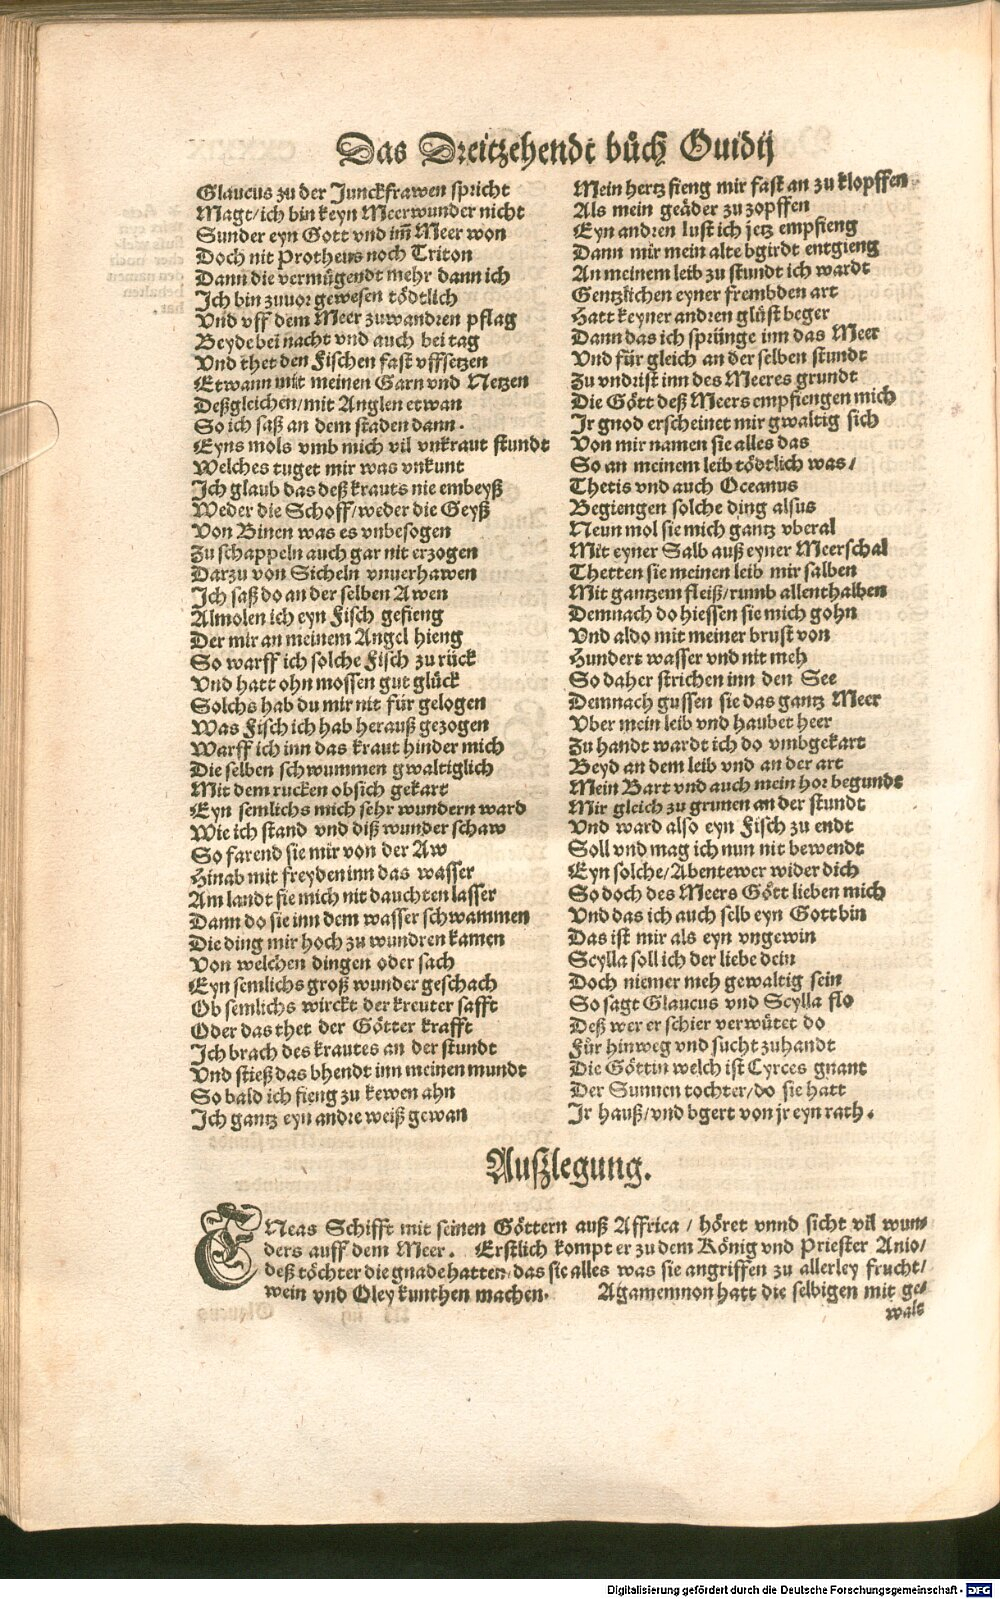 Das Dreitzehendt bůch Ouidij
Glaucus zu der Junckfrawen spricht
Magt/ich bin keyn Meerwunder nicht
Sunder eyn Gott vnd im̃ Meer won
Doch nit Protheus noch Triton
Dann die vermügendt mehr dann ich
Ich bin zuuor gewesen tödtlich
Vnd vff dem Meer zuwandren pflag
Beyde bei nacht vnd auch bei tag
Vnd thet den Fischen fast vffsetzen
Etwann mit meinen Garn vnd Netzen
Deßgleichen/mit Anglen etwan
So ich saß an dem staden dann.
Eyns mols vmb mich vil vnkraut stundt
Welches tuget mir was vnkunt
Ich glaub das deß krauts nie embeyß
Weder die Schoff/weder die Geyß
Von Binen was es vnbesogen
Zu schappeln auch gar nit erzogen
Darzu von Sicheln vnuerhawen
Ich saß do an der selben Awen
Almolen ich eyn Fisch gefieng
Der mir an meinem Angel hieng
So warff ich solche Fisch zu rück
Vnd hatt ohn mossen gut glück
Solchs hab du mir nit für gelogen
Was Fisch ich hab herauß gezogen
Warff ich inn das kraut hinder mich
Die selben schwummen gwaltiglich
Mit dem rucken obsich gekart
Eyn semlichs mich sehr wundern ward
Wie ich stand vnd diß wunder schaw
So farend sie mir von der Aw
Hinab mit freyden inn das wasser
Am landt sie mich nit dauchten lasser
Dann do sie inn dem wasser schwammen
Die ding mir hoch zu wundren kamen
Von welchen dingen oder sach
Eyn semlichs groß wunder geschach
Ob semlichs wirckt der kreuter safft
Oder das thet der Götter krafft
Ich brach des krautes an der stundt
Vnd stieß das bhendt inn meinen mundt
So bald ich fieng zu kewen ahn
Ich gantz eyn andre weiß gewan
Mein hertz fieng mir fast an zu klopffen
Als mein geäder zu zopffen
Eyn andren lust ich jetz empfieng
Dann mir mein alte bgirdt entgieng
An meinem leib zu stundt ich wardt
Gentzlichen eyner frembden art
Hatt keyner andren glüst beger
Dann das ich sprünge inn das Meer
Vnd für gleich an der selben stundt
Zu vndrist inn des Meeres grundt
Die Gött deß Meers empfiengen mich
Ir gnod erscheinet mir gwaltig sich
Von mir namen sie alles das
So an meinem leib tödtlich was/
Thetis vnd auch Oceanus
Begiengen solche ding alsus
Neun mol sie mich gantz vberal
Mit eyner Salb auß eyner Meerschal
Thetten sie meinen leib mir salben
Mit gantzem fleiß/rumb allenthalben
Demnach do hiessen sie mich gohn
Vnd aldo mit meiner brust von
Hundert wasser vnd nit meh
So daher strichen inn den See
Demnach gussen sie das gantz Meer
Vber mein leib vnd haubet heer
Zu handt wardt ich do vmbgekart
Beyd an dem leib vnd an der art
Mein Bart vnd auch mein hor begundt
Mir gleich zu grunen an der stundt
Vnd ward also eyn Fisch zu endt
Soll vnd mag ich nun nit bewendt
Eyn solche/Abentewer wider dich
So doch des Meers Gött lieben mich
Vnd das ich auch selb eyn Gott bin
Das ist mir als eyn vngewin
Scylla soll ich der liebe dein
Doch niemer meh gewaltig sein
So sagt Glaucus vnd Scylla flo
Deß wer er schier verwütet do
Für hinweg vnd sucht zuhandt
Die Göttin welch ist Cyrces gnant
Der Sunnen tochter/do sie hatt
Ir hauß/vnd bgert von jr eyn rath.
Außlegung.
ENeas Schifft mit seinen Göttern auß Affrica / höret vnnd sicht vil wun⸗
ders auff dem Meer. Erstlich kompt er zu dem König vnd Priester Anio/
deß töchter die gnade hatten/das sie alles was sie angriffen zu allerley frucht/
wein vnd Oley kunthen machen. Agamemnon hatt die selbigen mit ge⸗
walt
Digitalisierung gefördert durch die Deutsche Forschungsgemeinschaft - DFG